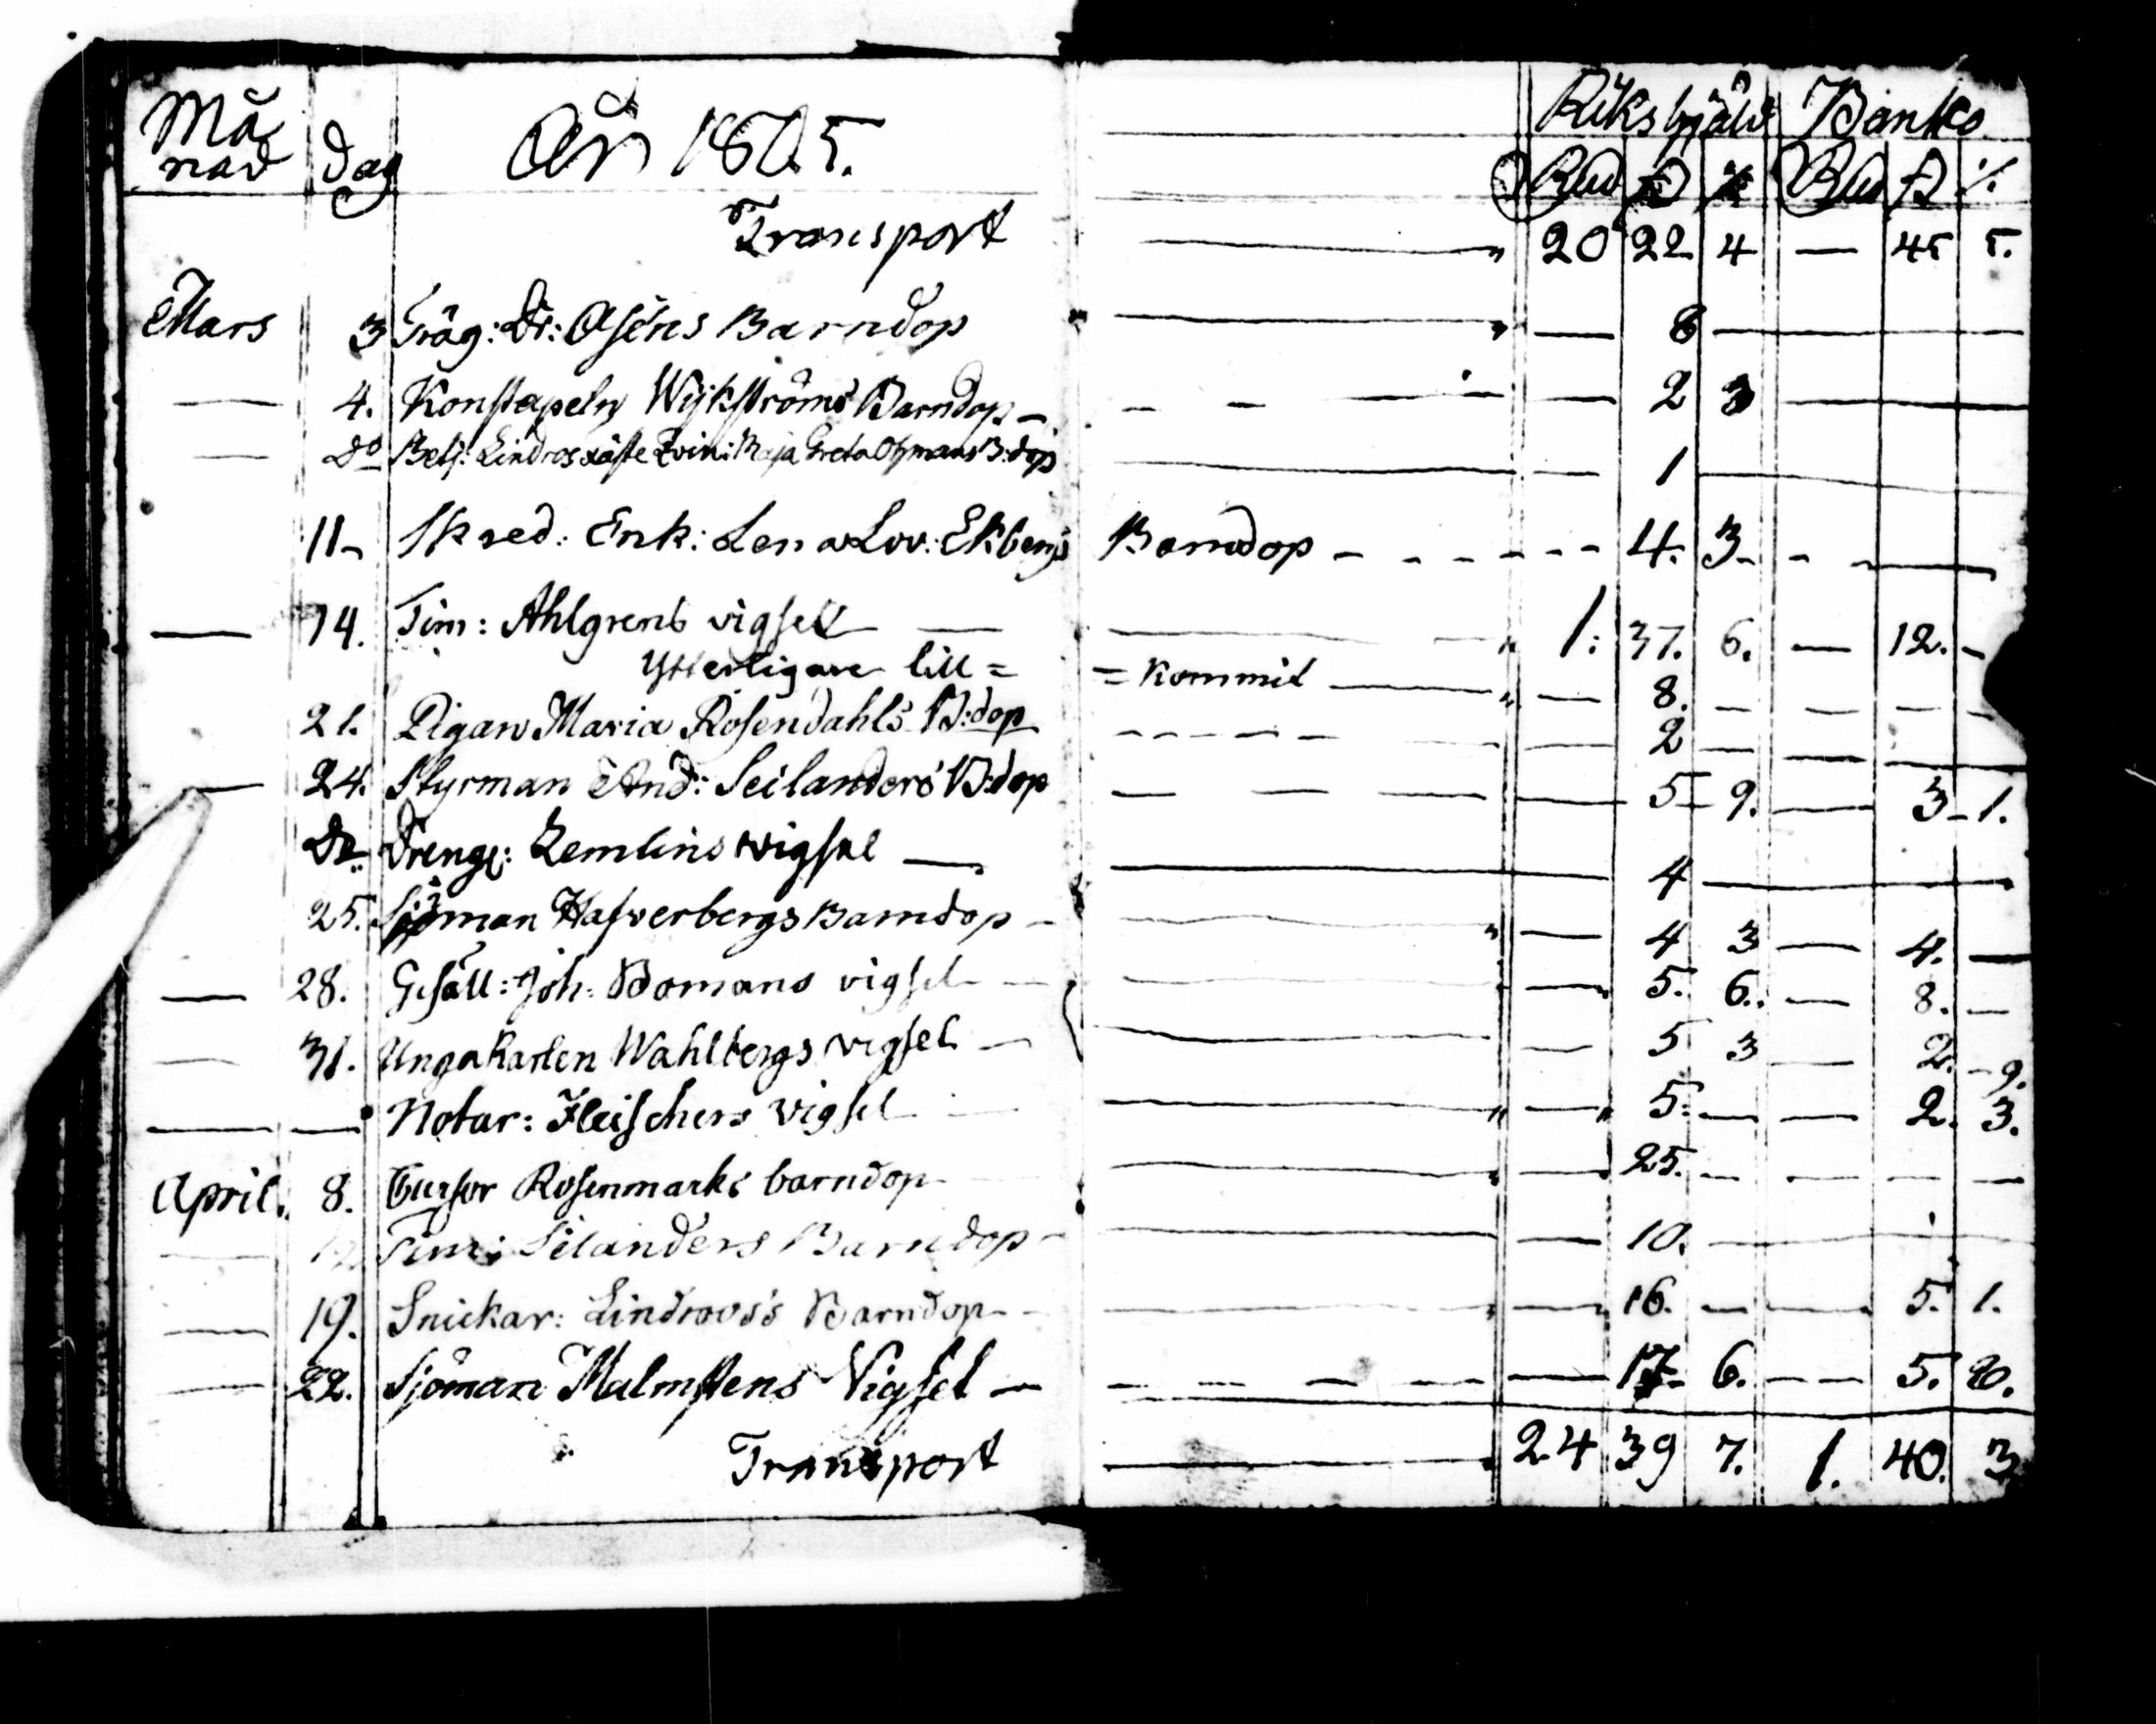 Må Riksgjäld Banko
nad dag År 1805. Rd ß Rd ß
Transport 20 22 4 — 45 5.
Mars 3 Träg: Dr: Aséns Barndop — 8 —
— 4. Konstapeln Wijkströms Barndop — — 2 3 —
— Do Betj: Lindros Maja Greta B:dop — 1 —
11 Sk red: Enk: Lena Lov: Ekbergs Barndop - 4. 3 -
— 14. Tim: Ahlgrens vigsell — 1: 37. 6. — 12. -
Ytterligare till = = kommit — 8. —
21. Pigan Maria Rosendahls B:dop - 2 —
— 24. Styrman And: Seilanders B:dop — 5 9. — 3 1.
Do Dreng: Zemlins vigsel — 4 —
25. Sjöman Hasverbergs Barndop - — 4 3 — 4. —
— 28. Gesäll: Joh: Bomans vigsel — 5. 6. — 8. —
— 31. Ungakarlen Wahlbergs vigsel — — 5 3 — 2. 9.
— — Notar: Fleischers vigsel — 5. — — 2. 3.
April. 8. Cursor Rosenmarks barndop — 25. —
— Tim: Silanders Barndop — 10. —
— 19. Snickar: Lindroos's Barndop — 16. — — 5. 1.
— 22. Sjöman Malmstens Vigsel — — 17 6. — 5.
Transport — 24 39 7. 1. 40. 3